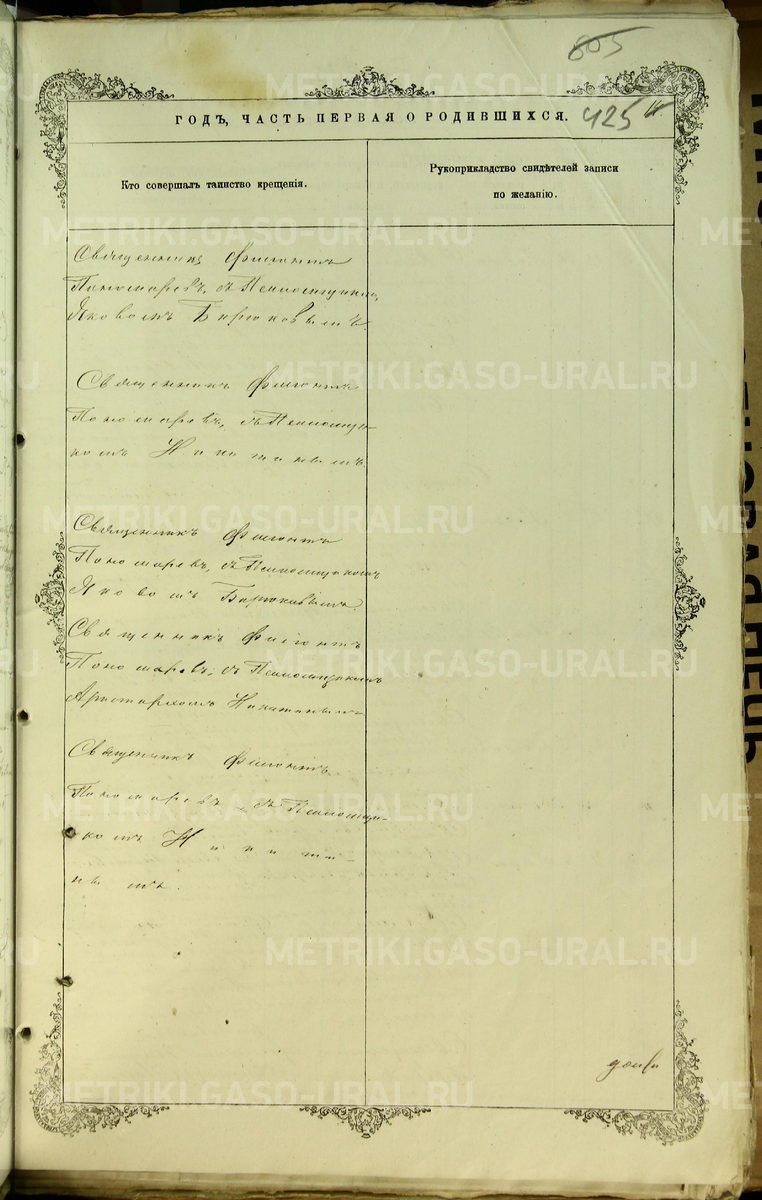 605
425
ГОДЪ, ЧАСТЬ ПЕРВАЯ О РОДИВШИХСЯ.
Кто совершалъ таинство крещенія.
Рукоприкладство свидѣтелей записи
по желанію.
Священникъ Филонтъ
Пономаревъ, съ Псаломщикомъ
Яковомъ Бирюковымъ.
Священникъ Филонтъ
Пономаревъ, съ Псаломщи-
комъ
Священникъ Филонтъ
Пономаревъ, съ Псаломщикомъ
Яковомъ Бирюковымъ.
Священникъ Филонтъ
Пономаревъ, съ Псаломщикомъ
Аристархомъ
Священникъ Филонтъ
Пономаревъ, съ Псаломщи-
комъ
METRIKI.GASO-URAL.RU